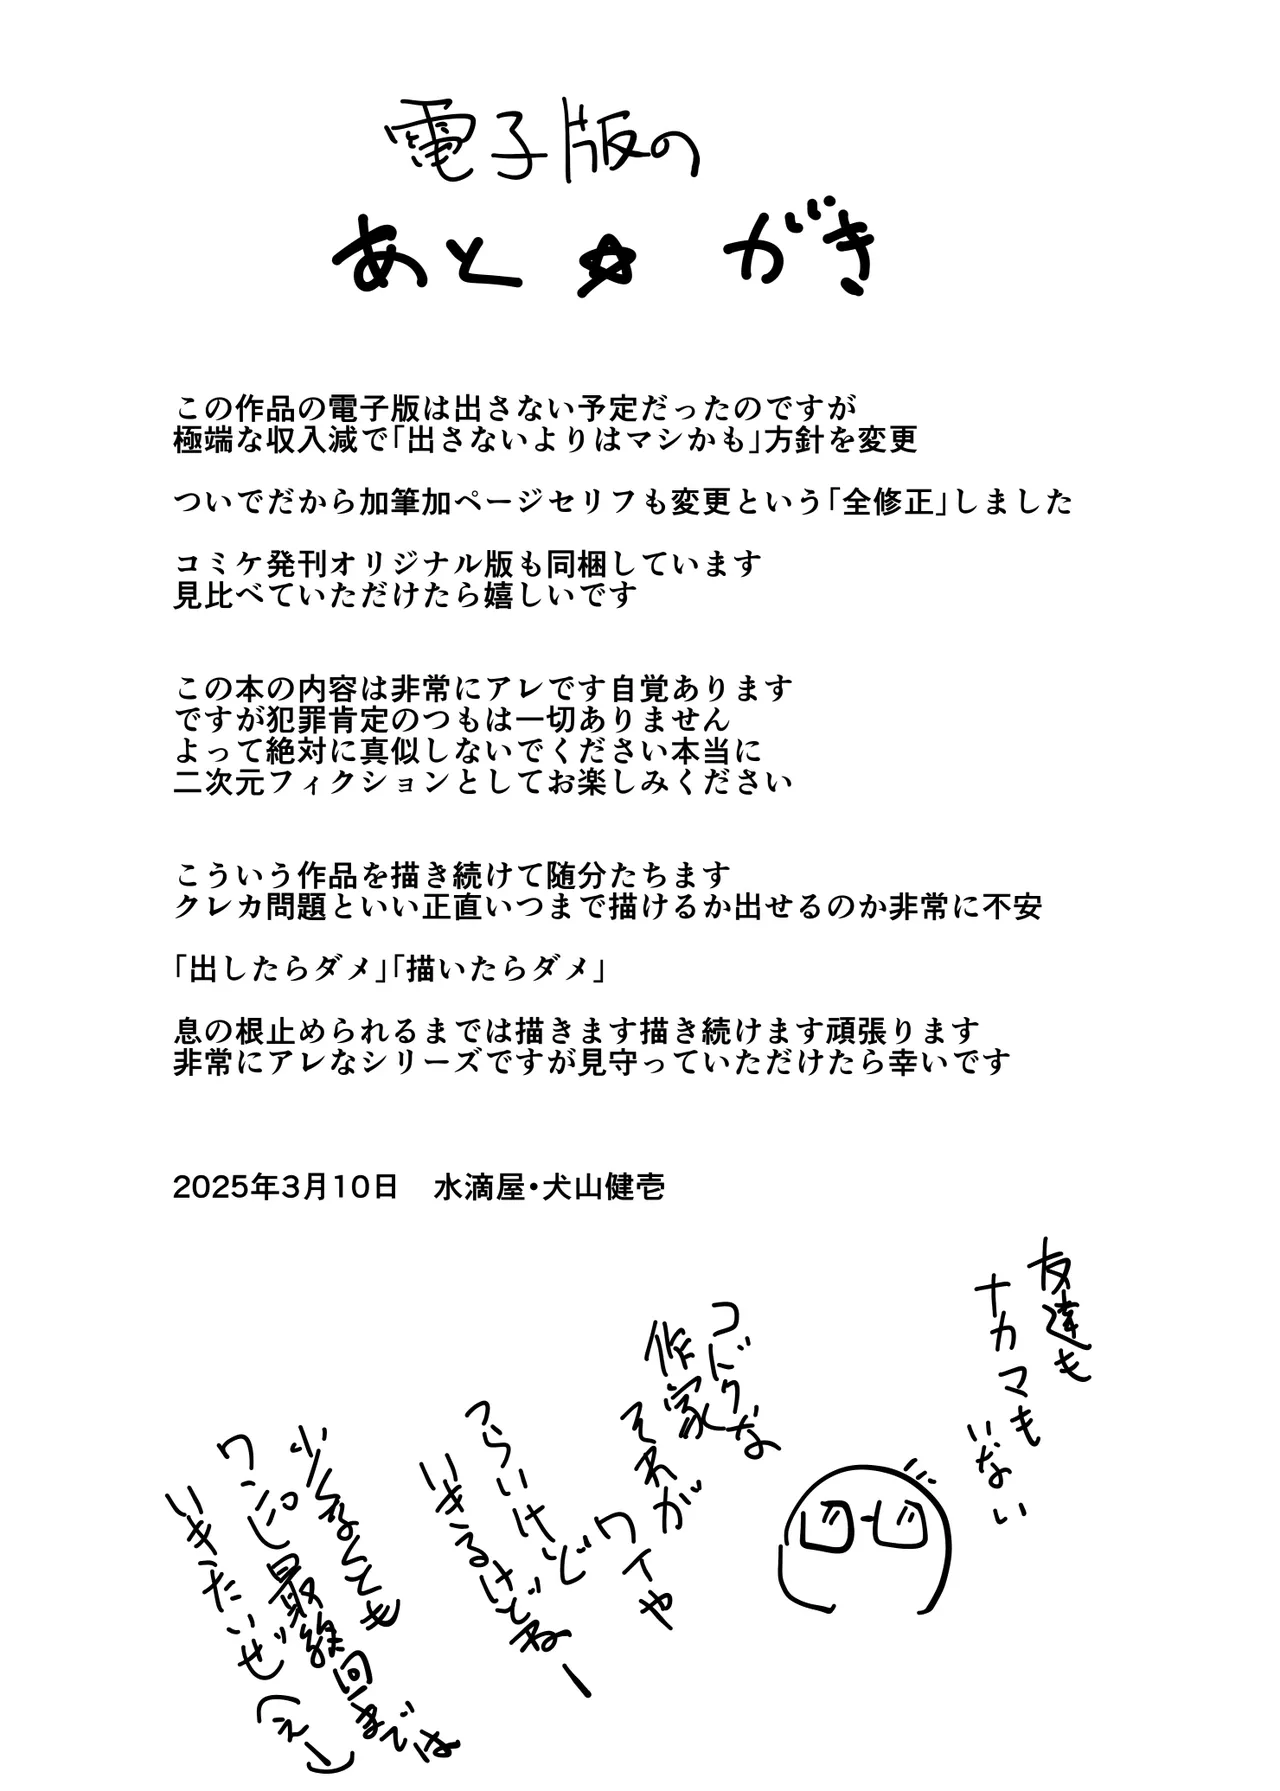 電子版の
あと☆がき
この作品の電子版は出さない予定だったのですが
極端な収入減で｢出さないよりはマシかも｣方針を変更
ついでだから加筆加ページセリフも変更という｢全修正｣しました
コミケ発刊オリジナル版も同梱しています
見比べていただけたら嬉しいです
この本の内容は非常にアレです自覚あります
ですが犯罪肯定のつもは一切ありません
よって絶対に真似しないでください本当に
二次元フィクションとしてお楽しみください
こういう作品を描き続けて随分たちます
クレカ問題といい正直いつまで描けるか出せるのか非常に不安
｢出したらダメ｣｢描いたらダメ｣
息の根止められるまでは描きます描き続けます頑張ります
非常にアレなシリーズですが見守っていただけたら幸いです
2025年3月10日　水滴屋・犬山健壱
友達も
ナカマも
いない
コドクな
作家
それが
ワイや
つらいけど
いきるけどねー
少なくとも
ワンピ最終回までは
いきたいぜ(えー)